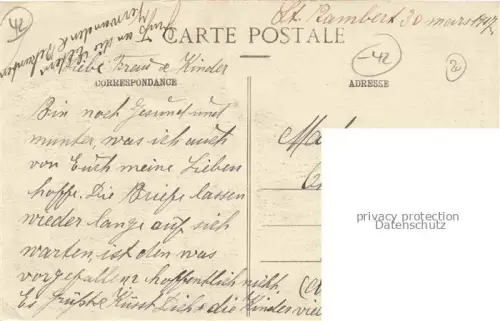 Gruß an die Eltern
Verwandten & Bekannten
St. Rambert 30 mars 1917
CARTE POSTALE
Liebe Frau & Kinder
CORRESPONDANCE
ADRESSE
42
-42
2
Bin noch Gesund und
munter, was ich auch
von Euch meine Lieben
hoffe. Die Briefe lassen
wieder lange auf sich
warten, ist den was
vorgefallen? hoffentlich nicht.
Es grüßt & Küsst Dich & die Kinder viel
privacy protection
Datenschutz